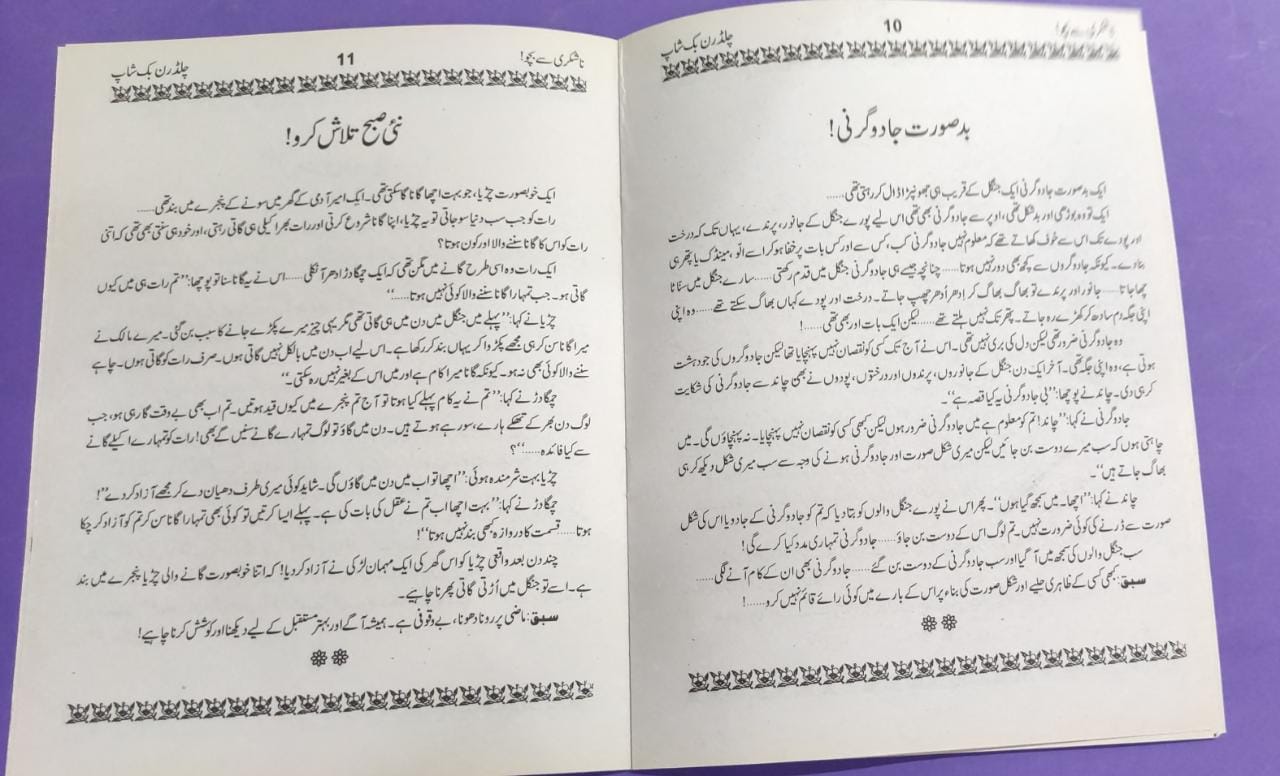 ناشکری سے بچو!
10
چلڈرن بک شاپ
بدصورت جادوگرنی!
ایک بدصورت جادوگرنی ایک جنگل کے قریب ہی جھونپڑا ڈال کر رہتی تھی.....
ایک تو وہ بوڑھی اور بدشکل تھی، اوپر سے جادوگرنی بھی تھی اس لیے پورے جنگل کے جانور، پرندے، یہاں تک کہ درخت
اور پودے تک اس سے خوف کھاتے تھے کہ معلوم نہیں جادوگرنی کب، کس سے اور کس بات پر خفا ہو کر اسے الّو، مینڈک یا پتھر ہی
بنا دے۔ کیونکہ جادوگروں سے کچھ بھی دور نہیں ہوتا...... چنانچہ جیسے ہی جادوگرنی جنگل میں قدم رکھتی...... سارے جنگل میں سناٹا
چھا جاتا...... جانور اور پرندے تو بھاگ بھاگ کر اِدھر اُدھر چھپ جاتے۔ درخت اور پودے کہاں بھاگ سکتے تھے...... وہ اپنی
اپنی جگہ دم سادھ کر کھڑے رہ جاتے۔ پتھر تک نہیں ہلتے تھے...... لیکن ایک بات اور بھی تھی......!
وہ جادوگرنی ضرور تھی لیکن دل کی بری نہیں تھی۔ اس نے آج تک کسی کو نقصان نہیں پہنچایا تھا لیکن جادوگروں کی جو دہشت
ہوتی ہے، وہ اپنی جگہ تھی۔ آخر ایک دن جنگل کے جانوروں، پرندوں اور درختوں، پودوں نے بھی چاند سے جادوگرنی کی شکایت
کر ہی دی۔ چاند نے پوچھا: ’’بی جادوگرنی یہ کیا قصہ ہے‘‘۔
جادوگرنی نے کہا: ’’چاند! تم کو معلوم ہے میں جادوگرنی ضرور ہوں لیکن کبھی کسی کو نقصان نہیں پہنچایا۔ نہ پہنچاؤں گی۔ میں
چاہتی ہوں کہ سب میرے دوست بن جائیں لیکن میری شکل صورت اور جادوگرنی ہونے کی وجہ سے سب میری شکل دیکھ کر ہی
بھاگ جاتے ہیں‘‘۔
چاند نے کہا: ’’اچھا۔ میں سمجھ گیا ہوں‘‘۔ پھر اس نے پورے جنگل والوں کو بتا دیا کہ تم کو جادوگرنی کے جادو یا اس کی شکل
صورت سے ڈرنے کی کوئی ضرورت نہیں۔ تم لوگ اس کے دوست بن جاؤ...... جادوگرنی تمہاری مدد کیا کرے گی!
سب جنگل والوں کی سمجھ میں آ گیا اور سب جادوگرنی کے دوست بن گئے...... جادوگرنی بھی ان کے کام آنے لگی......
سبق: کبھی کسی کے ظاہری حلیے اور شکل صورت کی بناء پر اس کے بارے میں کوئی رائے قائم نہیں کرو......!
ناشکری سے بچو!
11
چلڈرن بک شاپ
نئی صبح تلاش کرو!
ایک خوبصورت چڑیا، جو بہت اچھا گانا گا سکتی تھی۔ ایک امیر آدمی کے گھر میں سونے کے پنجرے میں بند تھی......
رات کو جب سب دنیا سو جاتی تو یہ چڑیا، اپنا گانا شروع کرتی اور رات بھر اکیلی ہی گاتی رہتی، اور خود ہی سنتی بھی تھی کہ اتنی
رات کو اس کا گانا سننے والا اور کون ہوتا؟
ایک رات وہ اسی طرح گانے میں مگن تھی کہ ایک چمگادڑ ادھر آ نکلی...... اس نے یہ گانا سنا تو پوچھا: ’’تم رات ہی میں کیوں
گاتی ہو۔ جب تمہارا گانا سننے والا کوئی نہیں ہوتا......‘‘
چڑیا نے کہا: ’’پہلے میں جنگل میں دن میں ہی گاتی تھی مگر یہی چیز میرے پکڑے جانے کا سبب بن گئی۔ میرے مالک نے
میرا گانا سن کر ہی مجھے پکڑوا کر یہاں بند کر رکھا ہے۔ اس لیے اب دن میں بالکل نہیں گاتی ہوں۔ صرف رات کو گاتی ہوں۔ چاہے
سننے والا کوئی بھی نہ ہو۔ کیونکہ گانا میرا کام ہے اور میں اس کے بغیر نہیں رہ سکتی۔‘‘
چمگادڑ نے کہا: ’’تم نے یہ کام پہلے کیا ہوتا تو آج تم پنجرے میں کیوں قید ہوتیں۔ تم اب بھی بے وقت گا رہی ہو، جب
لوگ دن بھر کے تھکے ہارے، سو رہے ہوتے ہیں۔ دن میں گاؤ تو لوگ تمہارے گانے سنیں گے بھی! رات کو تمہارے اکیلے گانے
سے کیا فائدہ......‘‘؟
چڑیا بہت شرمندہ ہوئی: ’’اچھا تو اب میں دن میں گاؤں گی۔ شاید کوئی میری طرف دھیان دے کر مجھے آزاد کر دے‘‘!
چمگادڑ نے کہا: ’’بہت اچھا اب تم نے عقل کی بات کی ہے۔ پہلے ایسا کرتیں تو کوئی بھی تمہارا گانا سن کر تم کو آزاد کر چکا
ہوتا...... قسمت کا دروازہ کبھی بند نہیں ہوتا‘‘!
چند دن بعد واقعی چڑیا کو اس گھر کی ایک مہمان لڑکی نے آزاد کر دیا! کہ اتنا خوبصورت گانے والی چڑیا پنجرے میں بند
ہے۔ اسے تو جنگل میں اُڑتی گاتی پھرنا چاہیے۔
سبق: ماضی پر رونا دھونا، بے وقوفی ہے۔ ہمیشہ آگے اور بہتر مستقبل کے لیے دیکھنا اور کوشش کرنا چاہیے!